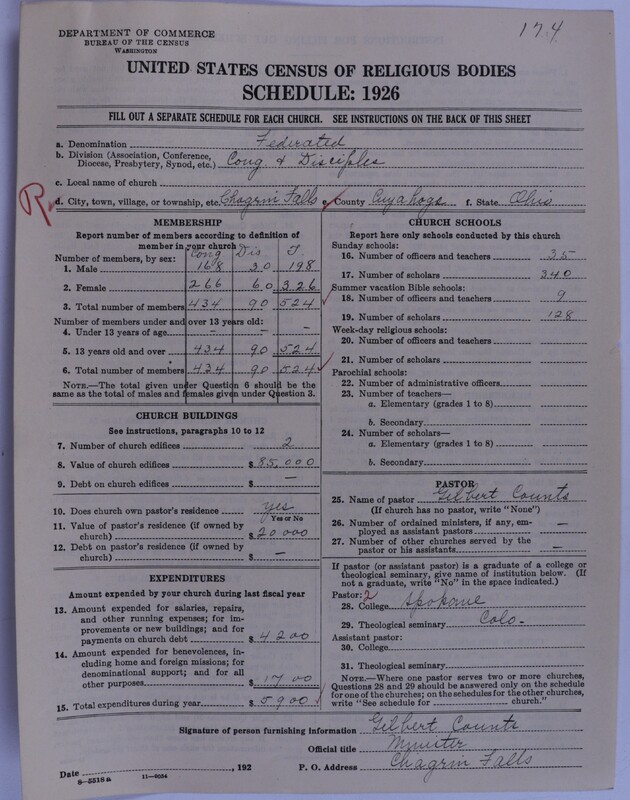 174
DEPARTMENT OF COMMERCE
BUREAU OF THE CENSUS
WASHINGTON
UNITED STATES CENSUS OF RELIGIOUS BODIES
SCHEDULE: 1926
FILL OUT A SEPARATE SCHEDULE FOR EACH CHURCH. SEE INSTRUCTIONS ON THE BACK OF THIS SHEET
a. Denomination Federated
b. Division (Association, Conference,
Diocese, Presbytery, Synod, etc.) Cong & Disciples
c. Local name of church
R d. City, town, village, or township, etc. Chagrin Falls e. County Cuyahoga f. State Ohio
MEMBERSHIP
Report number of members according to definition of
member in your church
Cong Dis T.
Number of members, by sex:
1. Male 168 30 198
2. Female 266 60 326
3. Total number of members 434 90 524
Number of members under and over 13 years old:
4. Under 13 years of age - - -
5. 13 years old and over 434 90 524
6. Total number of members 434 90 524
NOTE.—The total given under Question 6 should be
the same as the total of males and females given under Question 3.
CHURCH BUILDINGS
See instructions, paragraphs 10 to 12
7. Number of church edifices 2
8. Value of church edifices $85,000
9. Debt on church edifices $ —
10. Does church own pastor's residence yes
Yes or No
11. Value of pastor's residence (if owned by
church) $20000
12. Debt on pastor's residence (if owned by
church) $ —
EXPENDITURES
Amount expended by your church during last fiscal year
13. Amount expended for salaries, repairs,
and other running expenses; for im-
provements or new buildings; and for
payments on church debt $4200
14. Amount expended for benevolences, in-
cluding home and foreign missions; for
denominational support; and for all
other purposes $1700
15. Total expenditures during year $5900
CHURCH SCHOOLS
Report here only schools conducted by this church
Sunday schools:
16. Number of officers and teachers 35
17. Number of scholars 340
Summer vacation Bible schools:
18. Number of officers and teachers 9
19. Number of scholars 128
Week-day religious schools:
20. Number of officers and teachers
21. Number of scholars
Parochial schools:
22. Number of administrative officers
23. Number of teachers—
a. Elementary (grades 1 to 8)
b. Secondary
24. Number of scholars—
a. Elementary (grades 1 to 8)
b. Secondary
PASTOR
25. Name of pastor Gilbert Counts
(If church has no pastor, write "None")
26. Number of ordained ministers, if any, em-
ployed as assistant pastors —
27. Number of other churches served by the
pastor or his assistants —
If pastor (or assistant pastor) is a graduate of a college or
theological seminary, give name of institution below. (If
not a graduate, write "No" in the space indicated.)
Pastor: 2
28. College Spokane
29. Theological seminary Colo.
Assistant pastor:
30. College
31. Theological seminary
NOTE.—Where one pastor serves two or more churches,
Questions 28 and 29 should be answered only on the schedule
for one of the churches; on the schedules for the other churches,
write "See schedule for church."
Signature of person furnishing information Gilbert Counts
Official title Minister
Date , 192 P. O. Address Chagrin Falls
8—5518a 11—9054